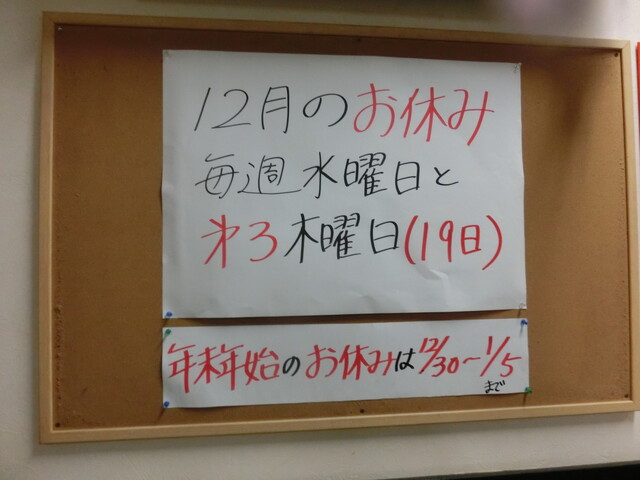 12月のお休み
毎週水曜日と
才3木曜日(19日)
年末年始のお休みは12/30〜1/5
まで